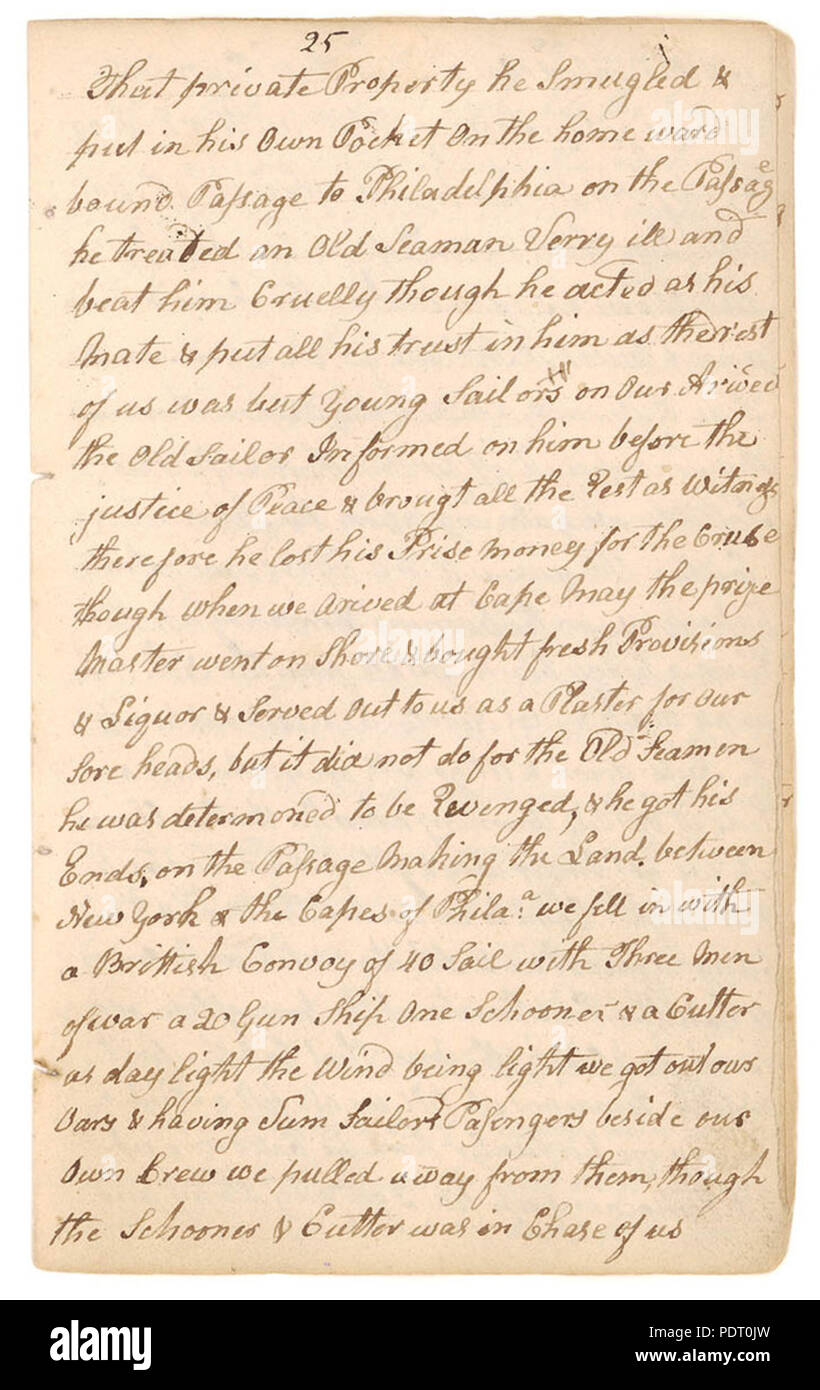 25
That private Property he Smugled &
put in his Own Pocket On the home ward
bound Paſsage to Philadelphia on the Paſsage
he treated an Old Seaman Verry ill and
beat him Cruelly though he acted as his
Mate & put all his trust in him as the rest
of us was but Young Sailors on Our Arived
the Old Sailor Informed on him before the
justice of Peace & brougt all the Rest as Witneſs
therefore he lost his Prise money for the Cruse
though when we arived at Cape May the prize
Master went on Shore & bought fresh Provisions
& Liquor & Served Out to us as a Plaster for our
Sore heads, but it did not do for the Old Seamen
he was determoned to be Revenged, & he got his
Ends, on the Paſsage Making the Land, between
New York & the Capes of Philaᵃ. we fell in with
a Brittish Convoy of 40 Sail with Three Men
of war a 20 Gun Ship One Schooner & a Cutter
as day light the Wind being light we got out our
Oars & having Sum Sailors Paſengers beside our
Own Crew we pulled away from them, though
the Schooner & Cutter was in Chase of us
alamy
alamy
alamy
alamy
a
a
a
alamy
Image ID: PDT0JW
www.alamy.com